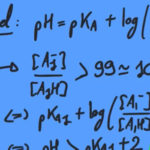 d: pH = pKA + log(
→ [A₂⁻]/[A₂H] > 99 ≃ 10
(=) pKA₂ + log([A₁⁻]/[A₁H]
(=) pH > pKA₂ + 2